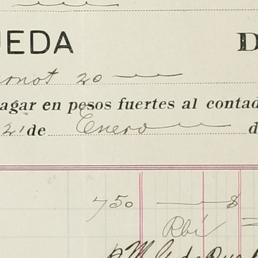 UEDA D
rnot 20
agar en pesos fuertes al contad
21 de Enero d
750 8
Rbí